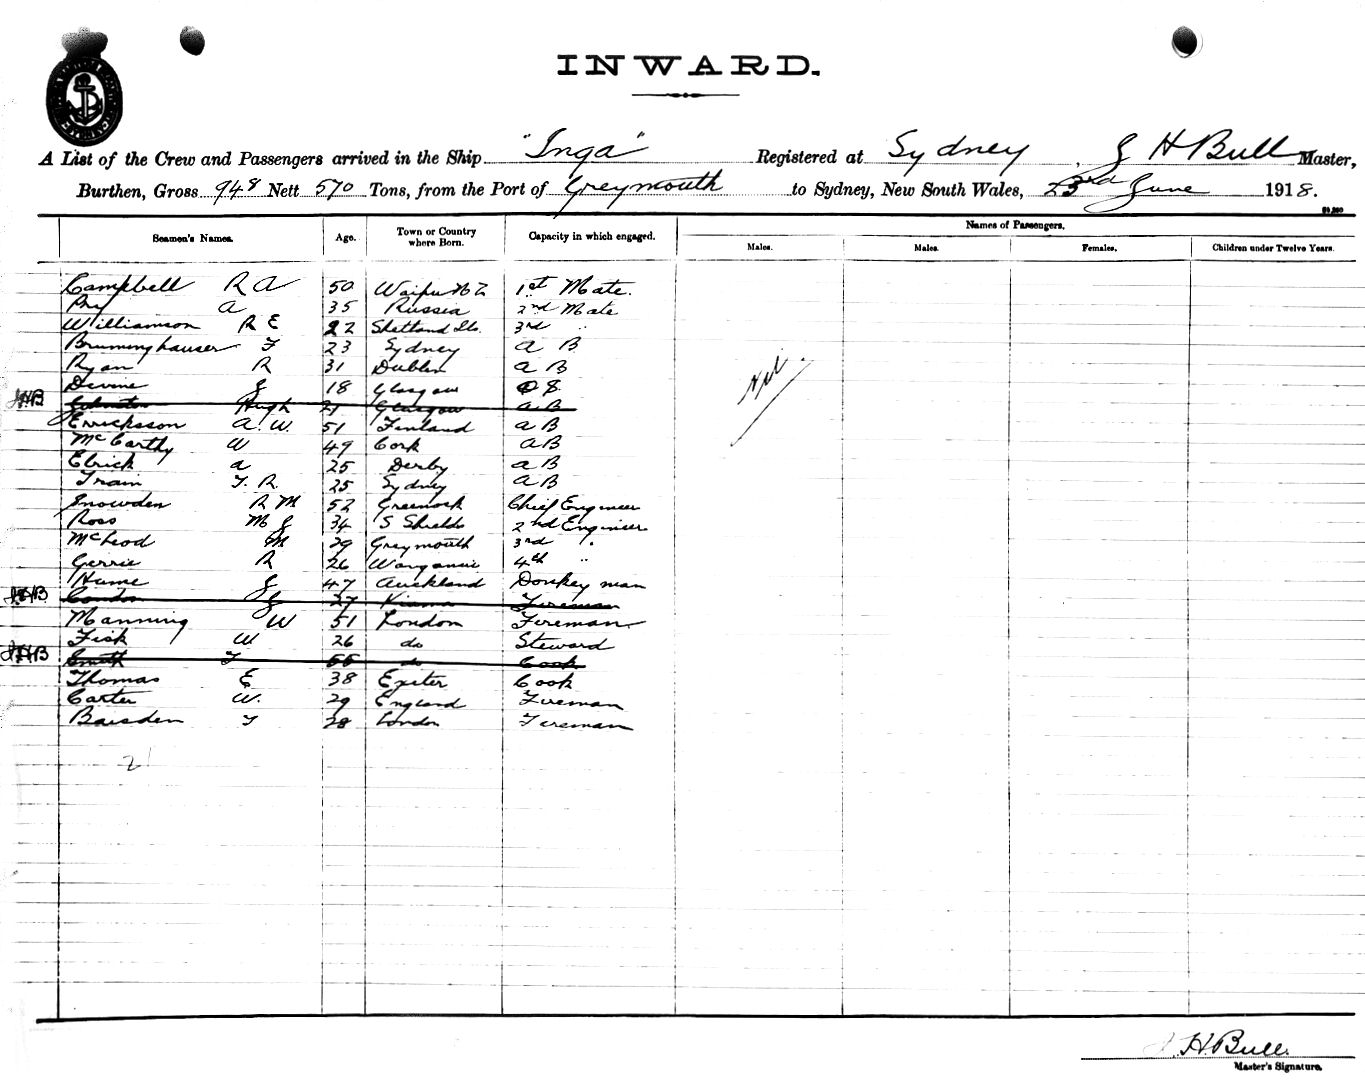 INWARD.
A List of the Crew and Passengers arrived in the Ship "Inga" Registered at Sydney, J H Bull Master,
Burthen, Gross 948 Nett 570 Tons, from the Port of Greymouth to Sydney, New South Wales, 23rd June 1918.
Seamen's Names. Age. Town or Country where Born. Capacity in which engaged. Names of Passengers.
Males. Males. Females. Children under Twelve Years.
Campbell R A 50 Waipu N Z 1st Mate.
A 35 Russia 2nd Mate
Williamson R E 22 Shetland Is. 3rd "
Brunninghauser F 23 Sydney A B
Ryan R 31 Dublin A B
Nil
Devine J 18 Glasgow O S
JHB Johnston Hugh 21 Glasgow A B
Erricksson A. W. 51 Finland A B
McCarthy W 49 Cork A B
Elrick A 25 Derby A B
Train F. R. 25 Sydney A B
Snowden R M 52 Greenock Chief Engineer
Ross M J 34 S Shields 2nd Engineer
McLeod M 29 Greymouth 3rd "
Gerrie R 26 Wanganui 4th "
Hume J 47 Auckland Donkey man
JHB Condon J 27 Kiama Fireman
Manning W 51 London Fireman
Fisk W 26 do Steward
JHB Smith F 55 do Cook
Thomas E 38 Exeter Cook
Carter W. 29 England Fireman
Barsden F 28 London Fireman
21
J. H. Bull.
Master's Signature.